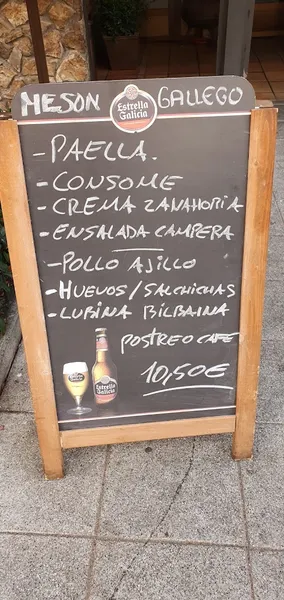 MESON Estrella Galicia GALLEGO
- PAELLA.
- CONSOME
- CREMA ZANAHORIA
- ENSALADA CAMPERA
- POLLO AJILLO
- HUEVOS/SALCHICHAS
- LUBINA BILBAINA
POSTRE O CAFE
10,50€
Estrella Galicia